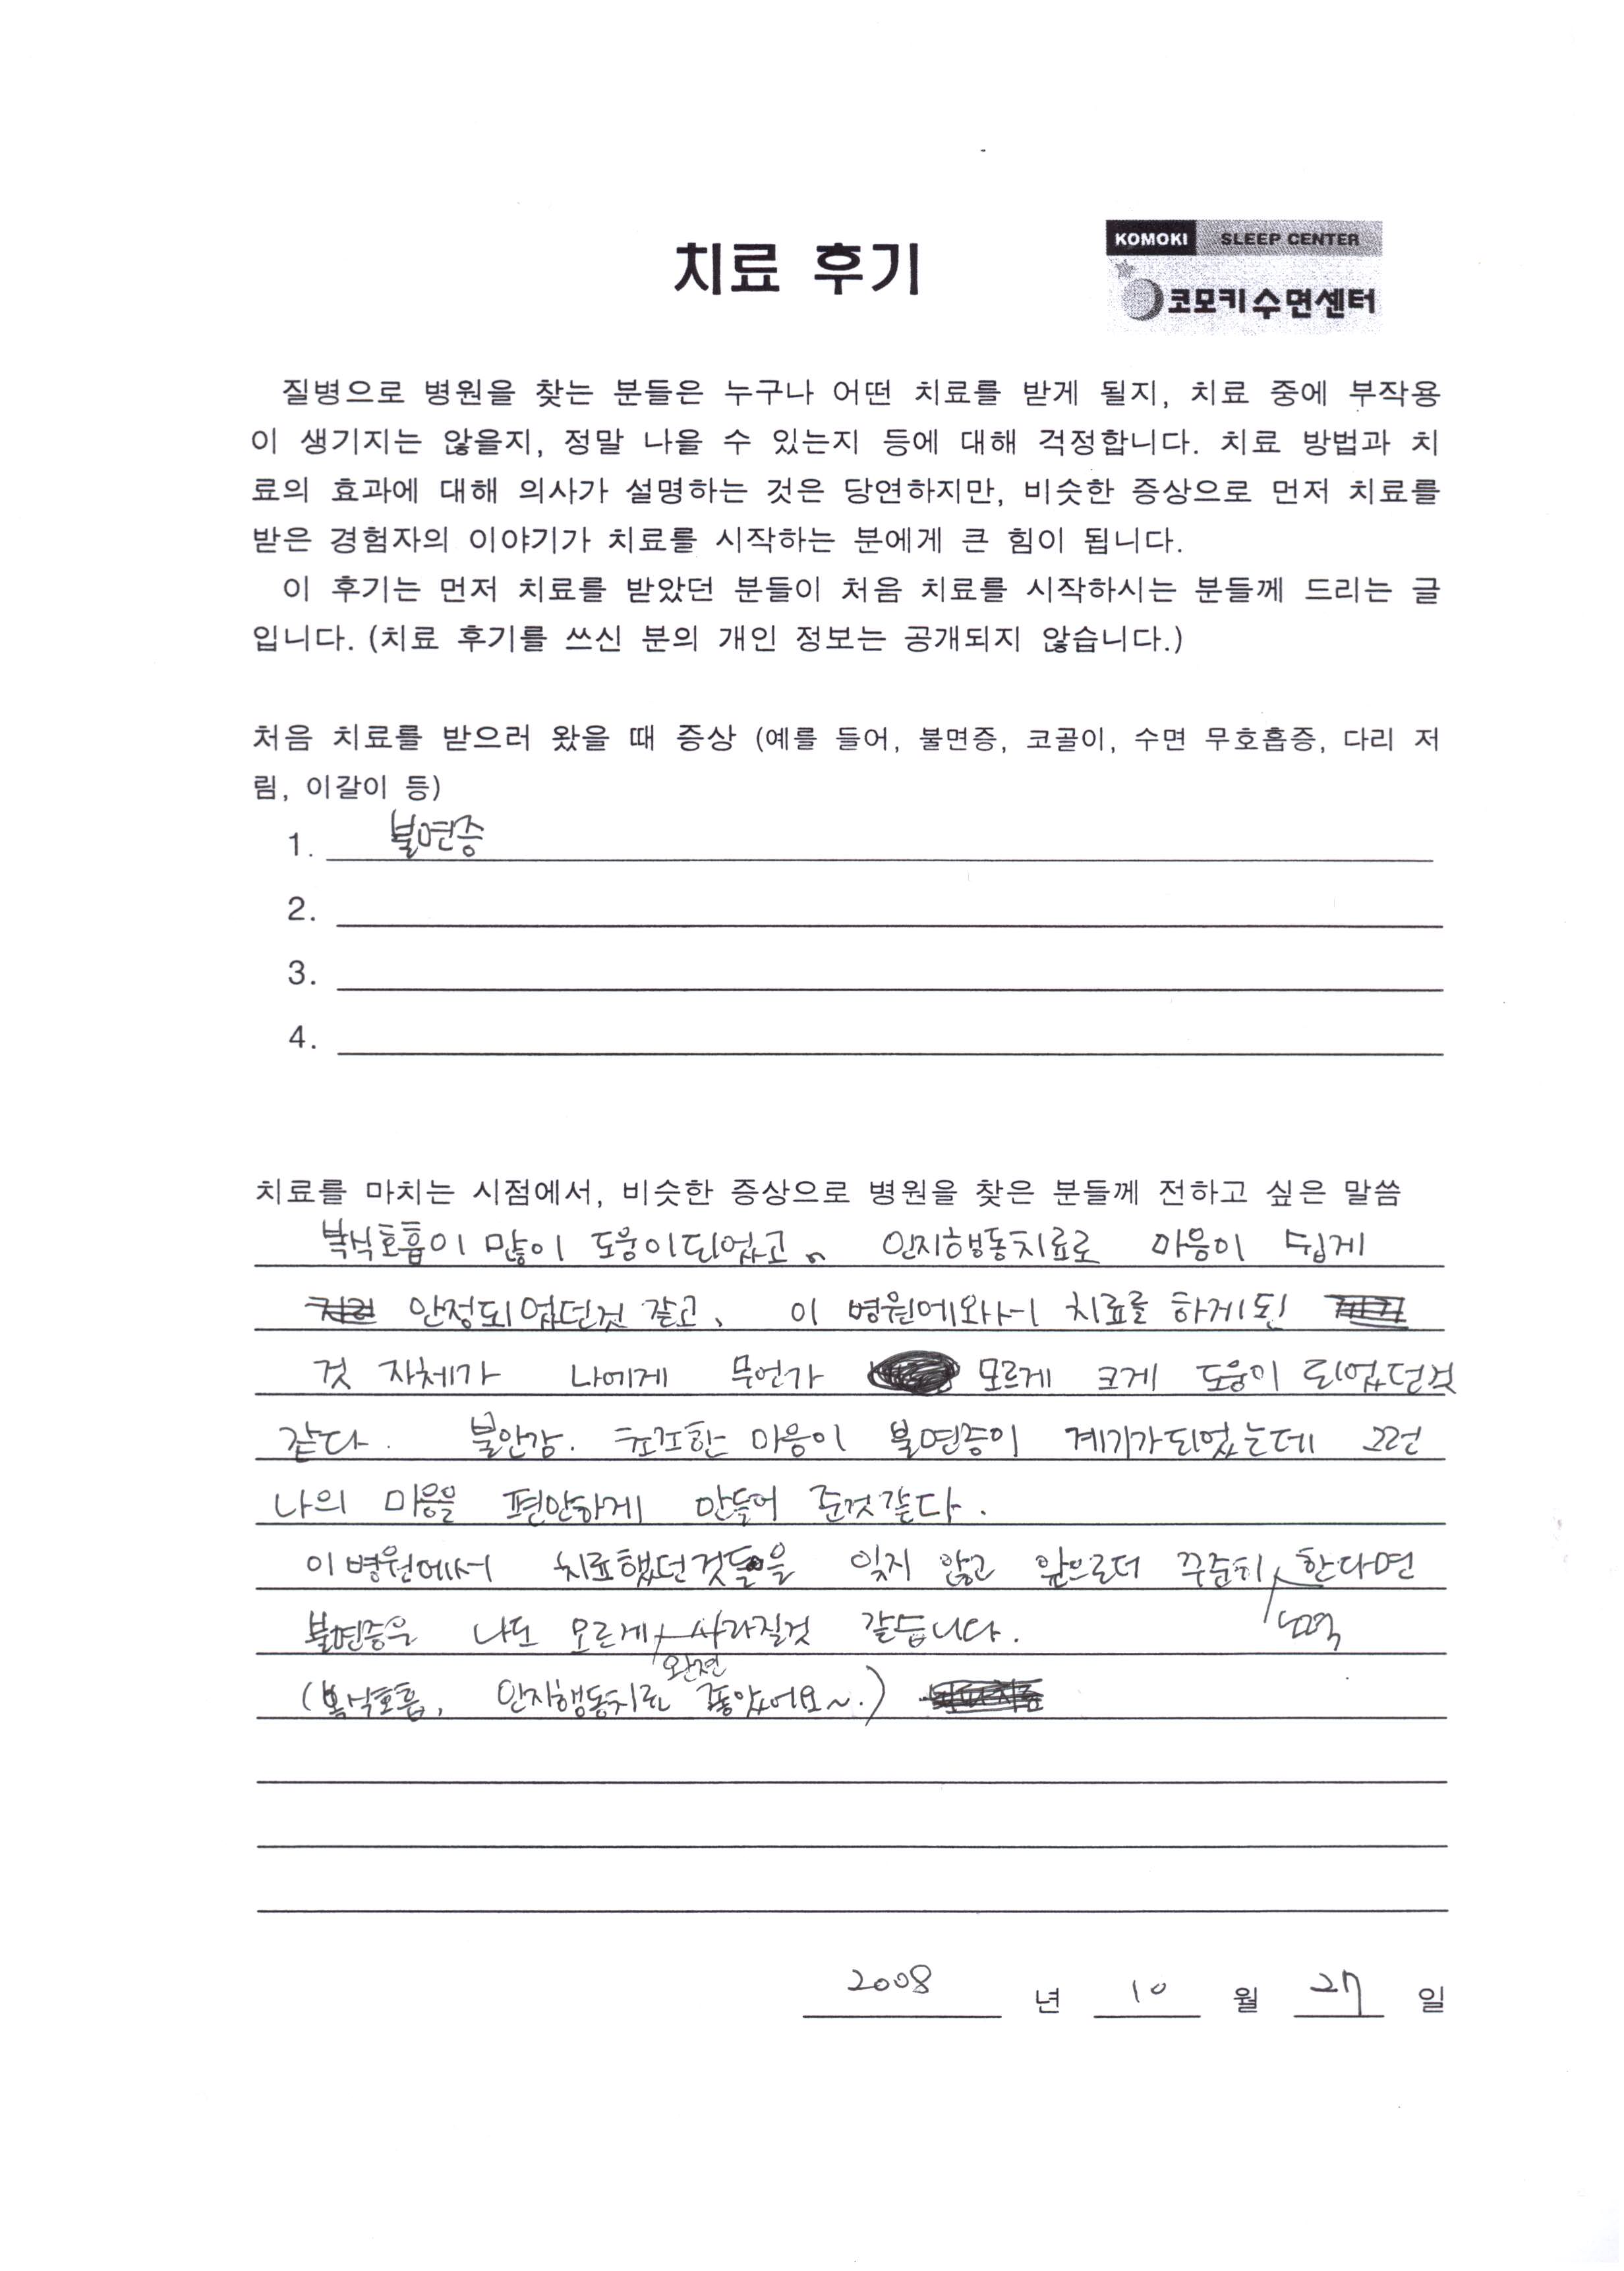 치료 후기
KOMOKI SLEEP CENTER
코모키수면센터
질병으로 병원을 찾는 분들은 누구나 어떤 치료를 받게 될지, 치료 중에 부작용
이 생기지는 않을지, 정말 나을 수 있는지 등에 대해 걱정합니다. 치료 방법과 치
료의 효과에 대해 의사가 설명하는 것은 당연하지만, 비슷한 증상으로 먼저 치료를
받은 경험자의 이야기가 치료를 시작하는 분에게 큰 힘이 됩니다.
이 후기는 먼저 치료를 받았던 분들이 처음 치료를 시작하시는 분들께 드리는 글
입니다. (치료 후기를 쓰신 분의 개인 정보는 공개되지 않습니다.)
처음 치료를 받으러 왔을 때 증상 (예를 들어, 불면증, 코골이, 수면 무호흡증, 다리 저
림, 이갈이 등)
1. 불면증
2.
3.
4.
치료를 마치는 시점에서, 비슷한 증상으로 병원을 찾은 분들께 전하고 싶은 말씀
복식호흡이 많이 도움이되었고. 인지행동치료로 마음이 쉽게
안정되었던것 같고, 이 병원에와서 치료를 하게된
것 자체가 나에게 무언가 모르게 크게 도움이 되었던것
같다. 불안감. 초조한 마음이 불면증이 계기가되었는데 그런
나의 마음을 편안하게 만들어 준것같다.
이병원에서 치료했던것들을 잊지 않고 앞으로더 꾸준히 노력 한다면
불면증은 나도 모르게 완전 사라질것 같습니다.
(복식호흡, 인지행동치료 좋았어요~.)
2008 년 10 월 27 일